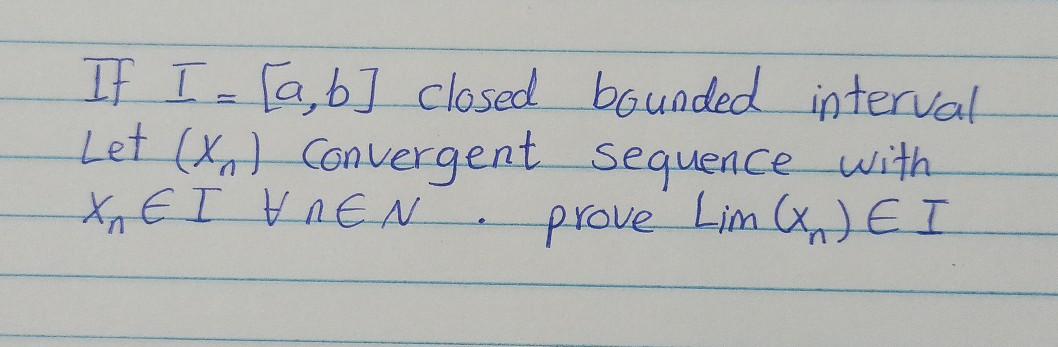 If I = [a,b] closed bounded interval
Let (xₙ) convergent sequence with
xₙ ∈ I ∀ n ∈ N . prove Lim (xₙ) ∈ I